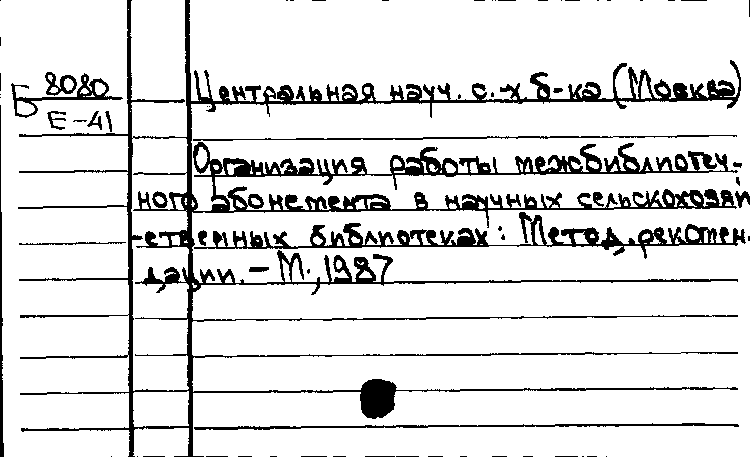 Б 8080
Е-41
Центральная науч. с.-х б-ка (Москва)
Организация работы межбиблиотеч-
ного абонемента в научных сельскохозяй
-ственных библиотеках: Метод. рекомен-
дации. - М., 1987